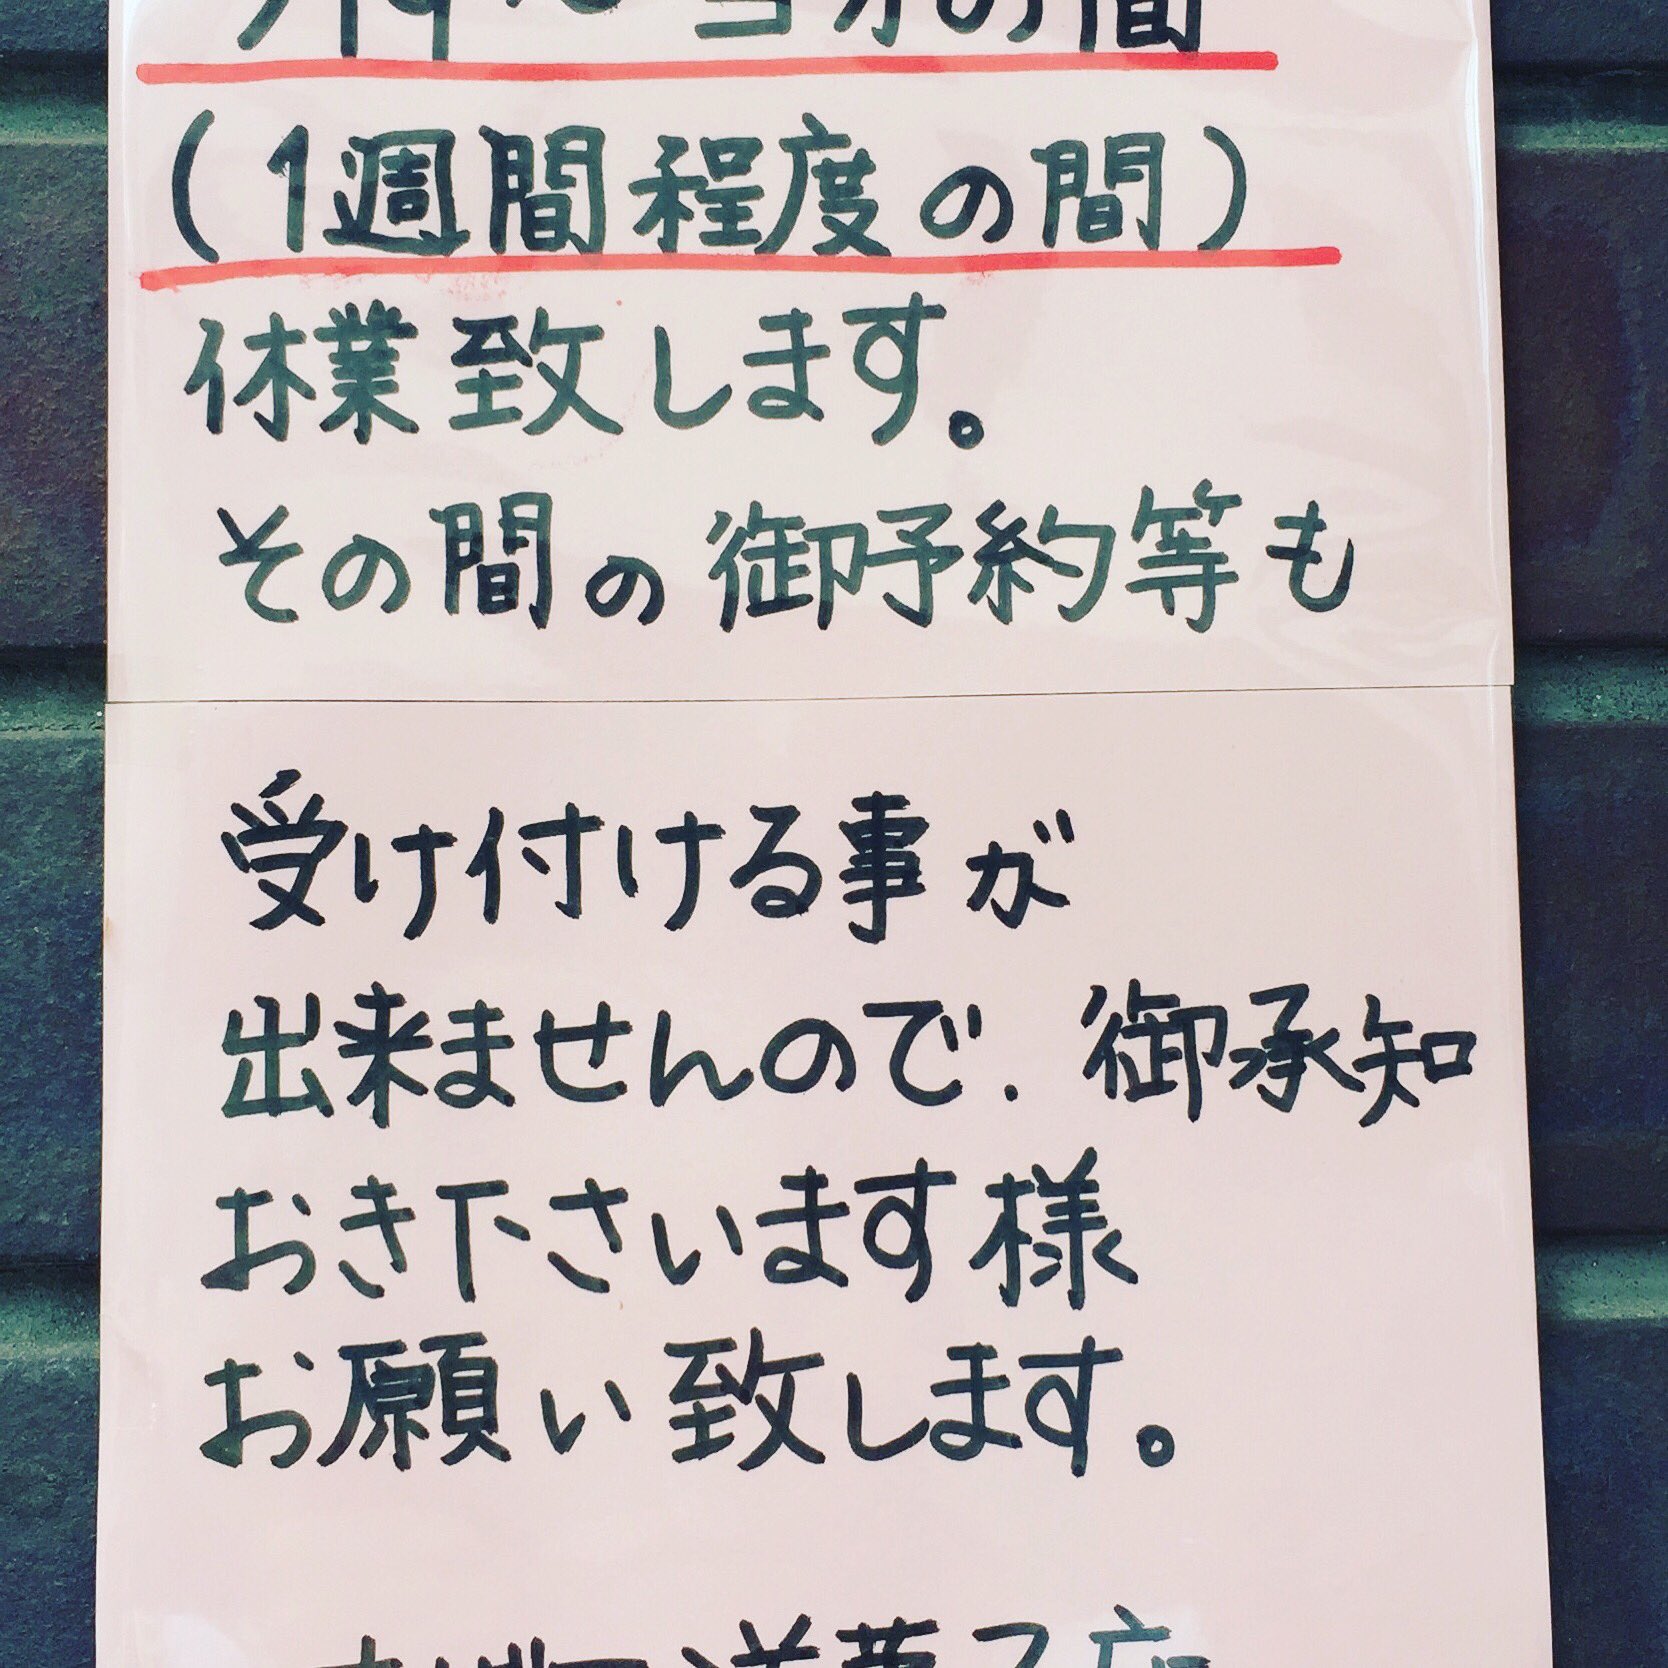 当分の間
(1週間程度の間)
休業致します。
その間の御予約等も
受け付ける事が
出来ませんので.御承知
おき下さいます様
お願い致します。
洋菓子店